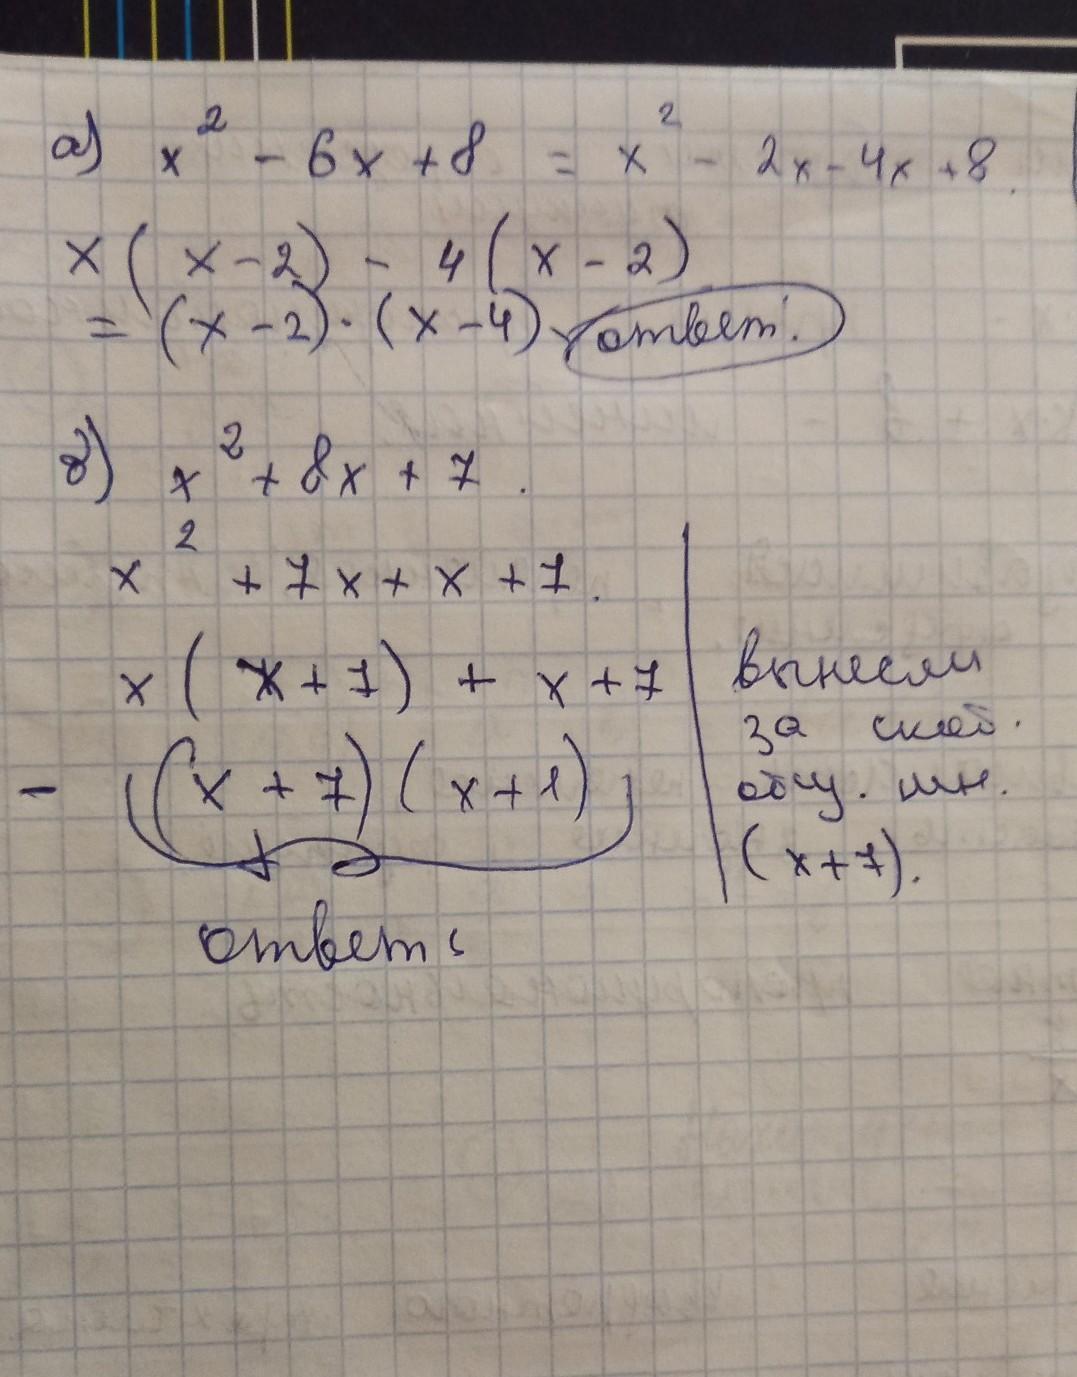 а) x² - 6x + 8 = x² - 2x - 4x + 8.
x ( x - 2) - 4 ( x - 2)
= (x - 2) · (x - 4) ответ.
б) x² + 8x + 7 .
x² + 7x + x + 7.
x ( x + 7) + x + 7
- (x + 7) ( x + 1)
ответ
вынесли
за скоб.
общ. мн.
( x + 7).